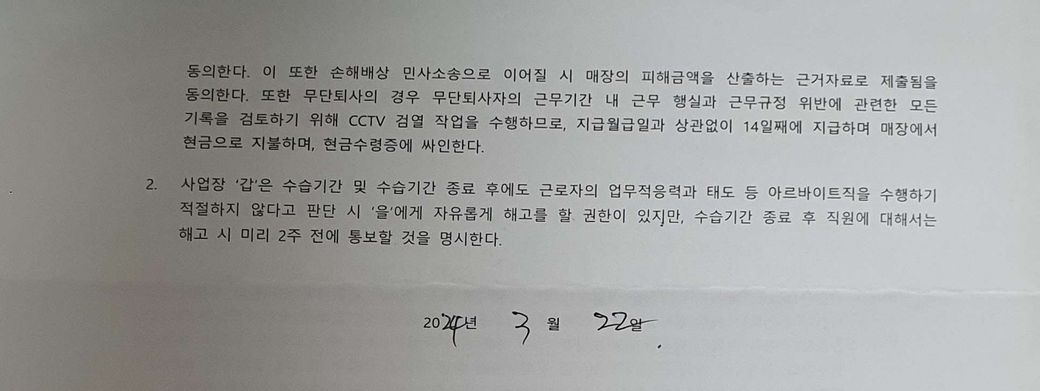 동의한다. 이 또한 손해배상 민사소송으로 이어질 시 매장의 피해금액을 산출하는 근거자료로 제출됨을
동의한다. 또한 무단퇴사의 경우 무단퇴사자의 근무기간 내 근무 행실과 근무규정 위반에 관련한 모든
기록을 검토하기 위해 CCTV 검열 작업을 수행하므로, 지급월급일과 상관없이 14일째에 지급하며 매장에서
현금으로 지불하며, 현금수령증에 싸인한다.
2. 사업장 '갑'은 수습기간 및 수습기간 종료 후에도 근로자의 업무적응력과 태도 등 아르바이트직을 수행하기
적절하지 않다고 판단 시 '을'에게 자유롭게 해고를 할 권한이 있지만, 수습기간 종료 후 직원에 대해서는
해고 시 미리 2주 전에 통보할 것을 명시한다.
2024년 3 월 22일